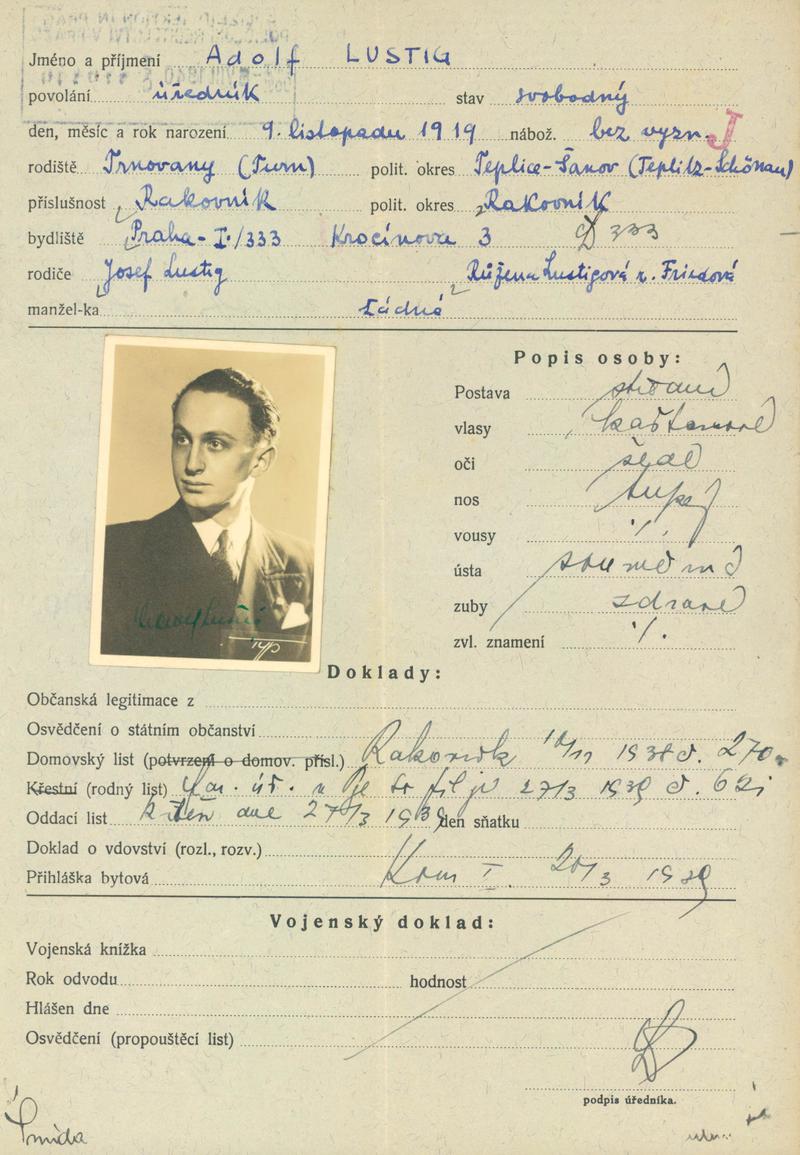 Jméno a příjmení Adolf LUSTIG
povolání úředník stav svobodný
den, měsíc a rok narození 9. listopadu 1919 nábož. bez vyzn. J
rodiště Trnovany (Turn) polit. okres Teplice-Šanov (Teplitz-Schönau)
příslušnost Rakovník polit. okres Rakovník
bydliště Praha-I./333 Krocínova 3 333
rodiče Josef Lustig Růžena Lustigová r. Friedová
manžel-ka žádná
Popis osoby:
Postava střední
vlasy kaštanové
oči šedé
nos tupý
vousy ./.
ústa souměrná
zuby zdravé
zvl. znamení ./.
Doklady:
Občanská legitimace z
Osvědčení o státním občanství
Domovský list (potvrzení o domov. přísl.) Rakovník 1938 č. 270
Křestní (rodný list) 27/3 1939 č.
Oddací list křtěn dne 27/3 1939 den sňatku
Doklad o vdovství (rozl., rozv.)
Přihláška bytová Kom I. 20/3 1939
Vojenský doklad:
Vojenská knížka
Rok odvodu hodnost
Hlášen dne
Osvědčení (propouštěcí list)
podpis úředníka.
Šmída